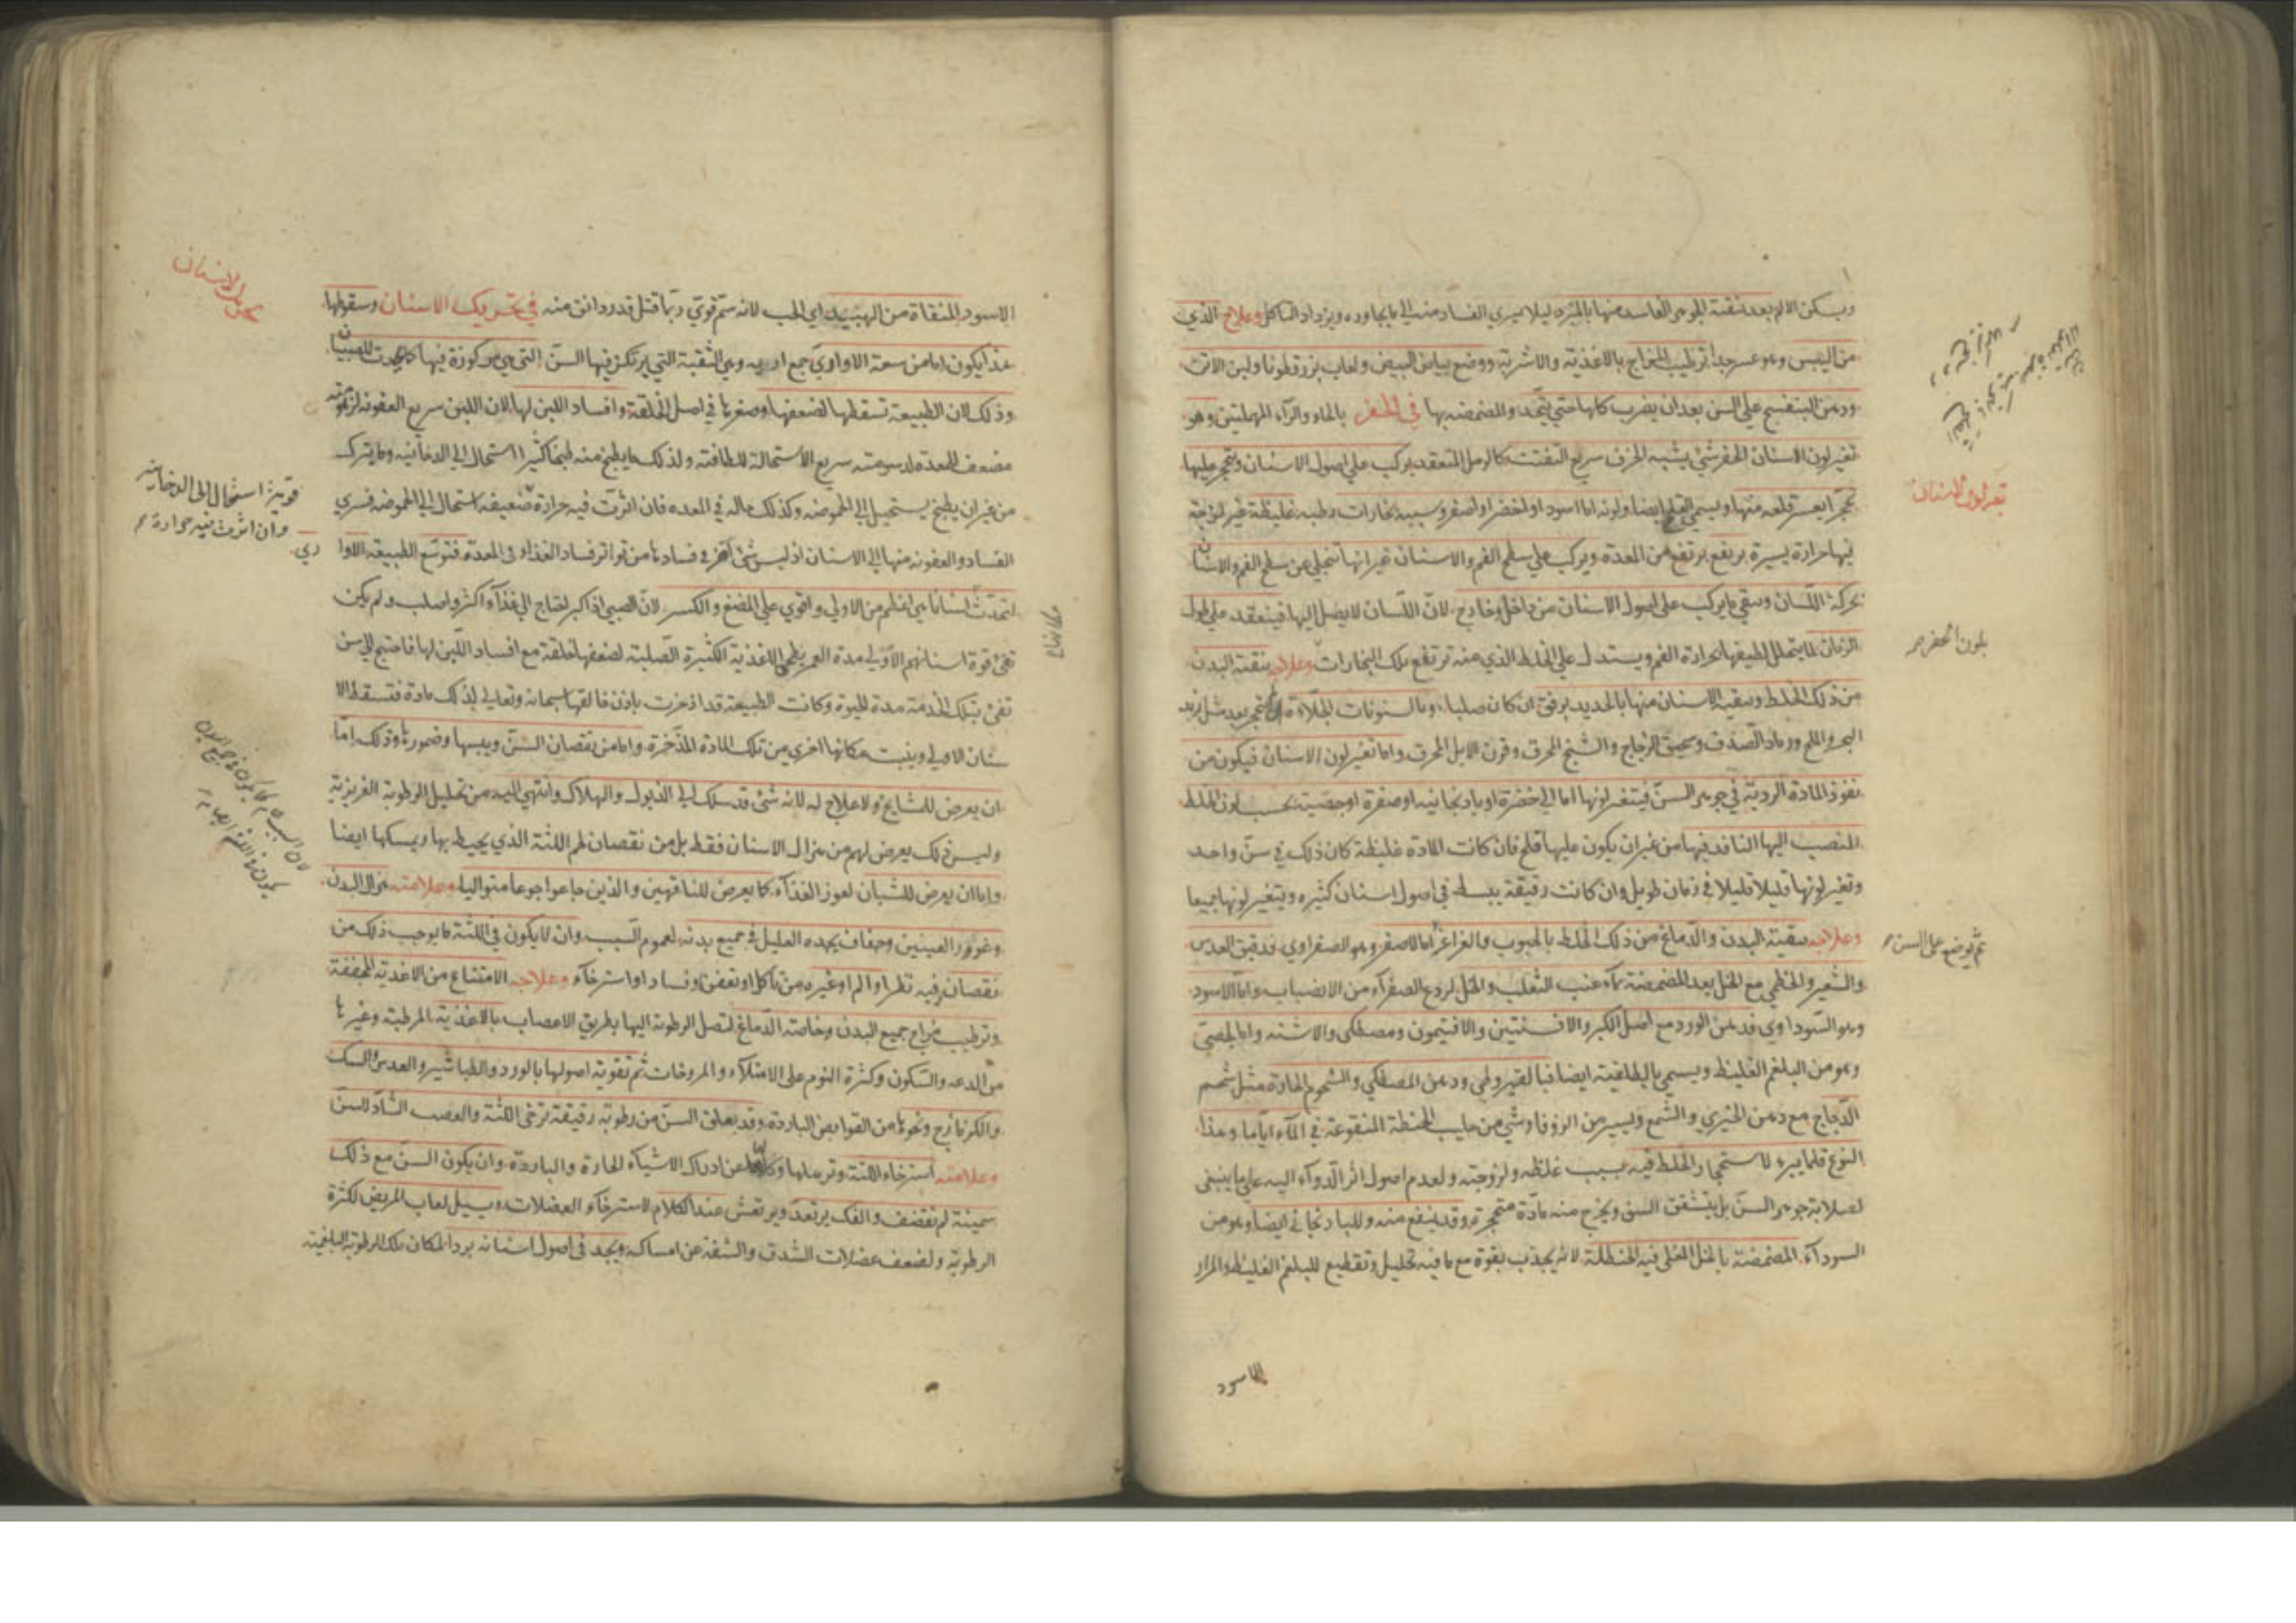 ويسكن الالم بعد تنقية الجوهر الفاسد منها بالمبرد ليلا يسري الفساد منه الي ما يجاوره ويزداد التاكل وعلاج الذي
من اليبس وهو عسر جدا ترطيب المزاج بالاغذية والاشربة ووضع بياض البيض ولعاب بزرقطونا ولبن الاتن
ودهن البنفسج علي السن بعد ان يضرب كلها حتي تتحد والمضمضه بها في الحفر بالحاء والرآء المهملتين وهو
تغير لون الاسنان الحفر شئ يشبه الخزف سريع التفتت كالرمل المنعقد يركب علي اصول الاسنان ويتحجر عليها
تحجرا يعسر قلعه منها ويسمي القلح ايضا ولونه اما اسود او اخضر او اصفر وسببه بخارات رطبه غليظة غير لزجة
فيها حرارة يسيرة ترتفع من المعدة ويركب علي سطح الفم والاسنان غير انها تنجلي عن سطح الفم والاسنان
بحركة اللسان ويبقي ما يركب علي اصول الاسنان من داخل وخارج لانّ اللسان لا يصل اليها فينعقد علي طول
الزمان لما يتحلل لطيفها بحرارة الفم ويستدل علي الخلط الذي منه ترتفع تلك البخارات وعلاجه تنقية البدن
من ذلك الخلط وتنقية الاسنان منها بالحديد برفق ان كان صلبا وبالسنونات الجلاءة ان لم يتحجر بعد مثل زبد
البحر والملح ورماد الصدف وسحيق الزجاج والشيح المحرق وقرن الايل المحرق واما تغير لون الاسنان فيكون من
نفوذ المادة الردية في جوهر السنّ فيتغير لونها اما الي خضرة او باذنجانيه او صفرة او جصّية بحسب لون الخلط
المنصب اليها النافذ فيها من غيران يكون عليها قلح فان كانت المادة غليظة كان ذلك في سنّ واحد
وتغير لونها قليلا قليلا في زمان طويل وان كانت رقيقة ينبسط في اصول اسنان كثيره ويتغير لونها جميعا
وعلاجه تنقية البدن والدماغ من ذلك الخلط بالحبوب والغراغر اما الاصفر وهو الصفراوي فدقيق العدس
والشعير والخطمي مع الخل بعد المضمضة بمآء عنب الثعلب والخل لردع الصفرآء من الانصباب واما الاسود
وهو السوداوي فدهن الورد مع اصل الكبر والافسنتين والافتيمون ومصطكي والاشنه واما الجصيّ
وهو من البلغم الغليظ ويسمي ايضا فبالقيروطي ودهن المصطكي والشحوم الحادة مثل شحم
الدجاج مع دهن الخيري والشمع ويسير من الزوفا وشي من حليب الحنطة المنقوعة في المآء اياما وهذا
النوع قلما يبرء لاستحجار الخلط فيه بسبب غلظه ولزوجته ولعدم اصول اثر الدوآء اليه علي ما ينبغي
لصلابة جوهر السنّ بل يتشقق السن ويخرج منه مادّة متحجرة وقد ينفع منه وللباذنجاني ايضا وهو من
السودآء المضمضة بالخل المغلي فيه الحنظلة لانه يجذب بقوة مع ما فيه تحليل وتقطيع للبلغم الغليظ والمرار
تغير لون الاسنان
بلون الحفر
ثم يوضع علي السن
الاسود
الاسود المنقاة من الهبيد اي الحب لانه سمّ قويّ ربما قتل قدر دانق منه في تحريك الاسنان وسقوطها
هذا يكون اما من سعة الاواري جمع اريه وهي الثقبة التي يرتكز فيها السنّ التي هي مركوزة فيها كما يحدث للصبيان
وذلك لان الطبيعة تسقطها لضعفها وصغرها في اصل الخلقة وافساد اللبن لها لان اللبن سريع العفونه
مضعف للمعدة لدسومته سريع الاستحالة للطافته ولذلك ما يطبخ منه طبخا كثيرا استحال الي الدخانيه وما يترك
من غيران يطبخ يستحيل الي الحموضه وكذلك حاله في المعده فان اثرت فيه حرارة ضعيفه استحال الي الحموضه فسري
الفساد والعفونه منها الي الاسنان اذ ليس شئ اضر في فسادها من تواتر فساد الغذاء في المعدة فتوسّع الطبيعة الاوا
ري
لتحدث اسنانا هي اعظم من الاولي واقوي علي المضغ والكسر لانّ الصبي اذا كبر احتاج الي غذآء اكثر واصلب ولم يكن
تفئ قوة اسنانهم الاوّلي مدة العمر بطحن الاغذية الكثيرة الصلبة لضعفها خلقة مع افساد اللبن لها فاحتيج الي سن
تفئ بتلك الخدمة مدة الحيوة وكانت الطبيعة قد اذخرت باذن خالقها سبحانه وتعالي لذلك مادة فتسقط الا
سنان الاولي وينبت مكانها اخري من تلك المادة المدّخرة واما من نقصان السنّ ويبسها وضمورها وذلك امّا
ان يعرض للمشايخ ولا علاج له لانه شئ قد سلك الي الذبول والهلاك وانتهي اليه من تحليل الرطوبة الغريزية
وليس ذلك يعرض لهم من هزال الاسنان فقط بل من نقصان لحم اللثة الذي يحيط بها ويمسكها ايضا
واما ان يعرض للشبان لعوز الغذآء كما يعرض للناقهين والذين جاعوا جوعا متواليا وعلامته هزال البدن
وغوور العينين وجفاف يجده العليل في جميع بدنه لعموم السبب وان لا يكون في اللثة ما يوجب ذلك من
نقصان فيه نظر او الم او غيره من تاكل او تعفن او فساد او استرخآء وعلاجه الامتناع من الاغذية المجففة
وترطيب مزاج جميع البدن وخاصة الدماغ لتصل الرطوبة اليها بطريق الاعصاب بالاغذية المرطبة وغيرها
من الدعه والسكون وكثرة النوم علي الامتلآء والمروخات ثم تقوية اصولها بالورد والطباشير والعدس والسك
والكزمازج ونحوها من القوابض الباردة وقد يقلق السنّ من رطوبة رقيقة ترخي اللثة والعصب الشادّ للسنّ
وعلامته استرخاء اللثة وترهلها عن ادراك الاشيآء الحارة والباردة وان يكون السنّ مع ذلك
سمينة لم تقضف والفك يرتعد ويرتعش عند الكلام لاسترخآء العضلات ويسيل لعاب المريض لكثرة
الرطوبة ولضعف عضلات الشدق والشفة عن امساكه ويجد في اصول اسنانه برد المكان تلك الرطوبة البلغمية
تحريك الاسنان
قوية استحال الي الدخانية
وان اثرت فيه حرارة